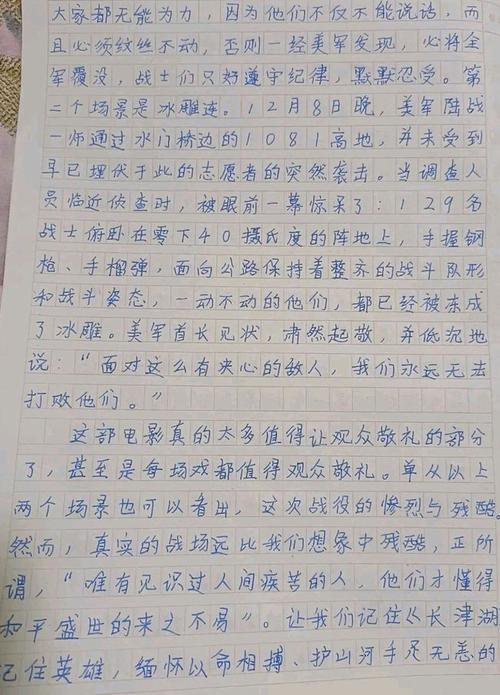 大家都无能为力，因为他们不仅不能说话，而
且必须纹丝不动，否则一经美军发现，必将全
军覆没，战士们只好遵守纪律，默默忍受。第
二个场景是冰雕连。12月8日晚，美军陆战
一师通过水门桥边的1081高地，并未受到
早已埋伏于此的志愿者的突然袭击。当调查人
员临近侦查时，被眼前一幕惊呆了：129名
战士俯卧在零下40摄氏度的阵地上，手握钢
枪、手榴弹，面向公路保持着整齐的战斗队形
和战斗姿态，一动不动的他们，都已经被冻成
了冰雕。美军首长见状，肃然起敬，并低沉地
说：“面对这么有决心的敌人，我们永远无法
打败他们。”
这部电影真的太多值得让观众敬礼的部分
了，甚至是每场戏都值得观众敬礼。单从以上
两个场景也可以看出，这次战役的惨烈与残酷。
然而，真实的战场远比我们想象中残酷，正所
谓，“唯有见识过人间疾苦的人，他们才懂得
和平盛世的来之不易”。让我们记住《长津湖
记住英雄，缅怀以命相搏、护山河手足无恙的